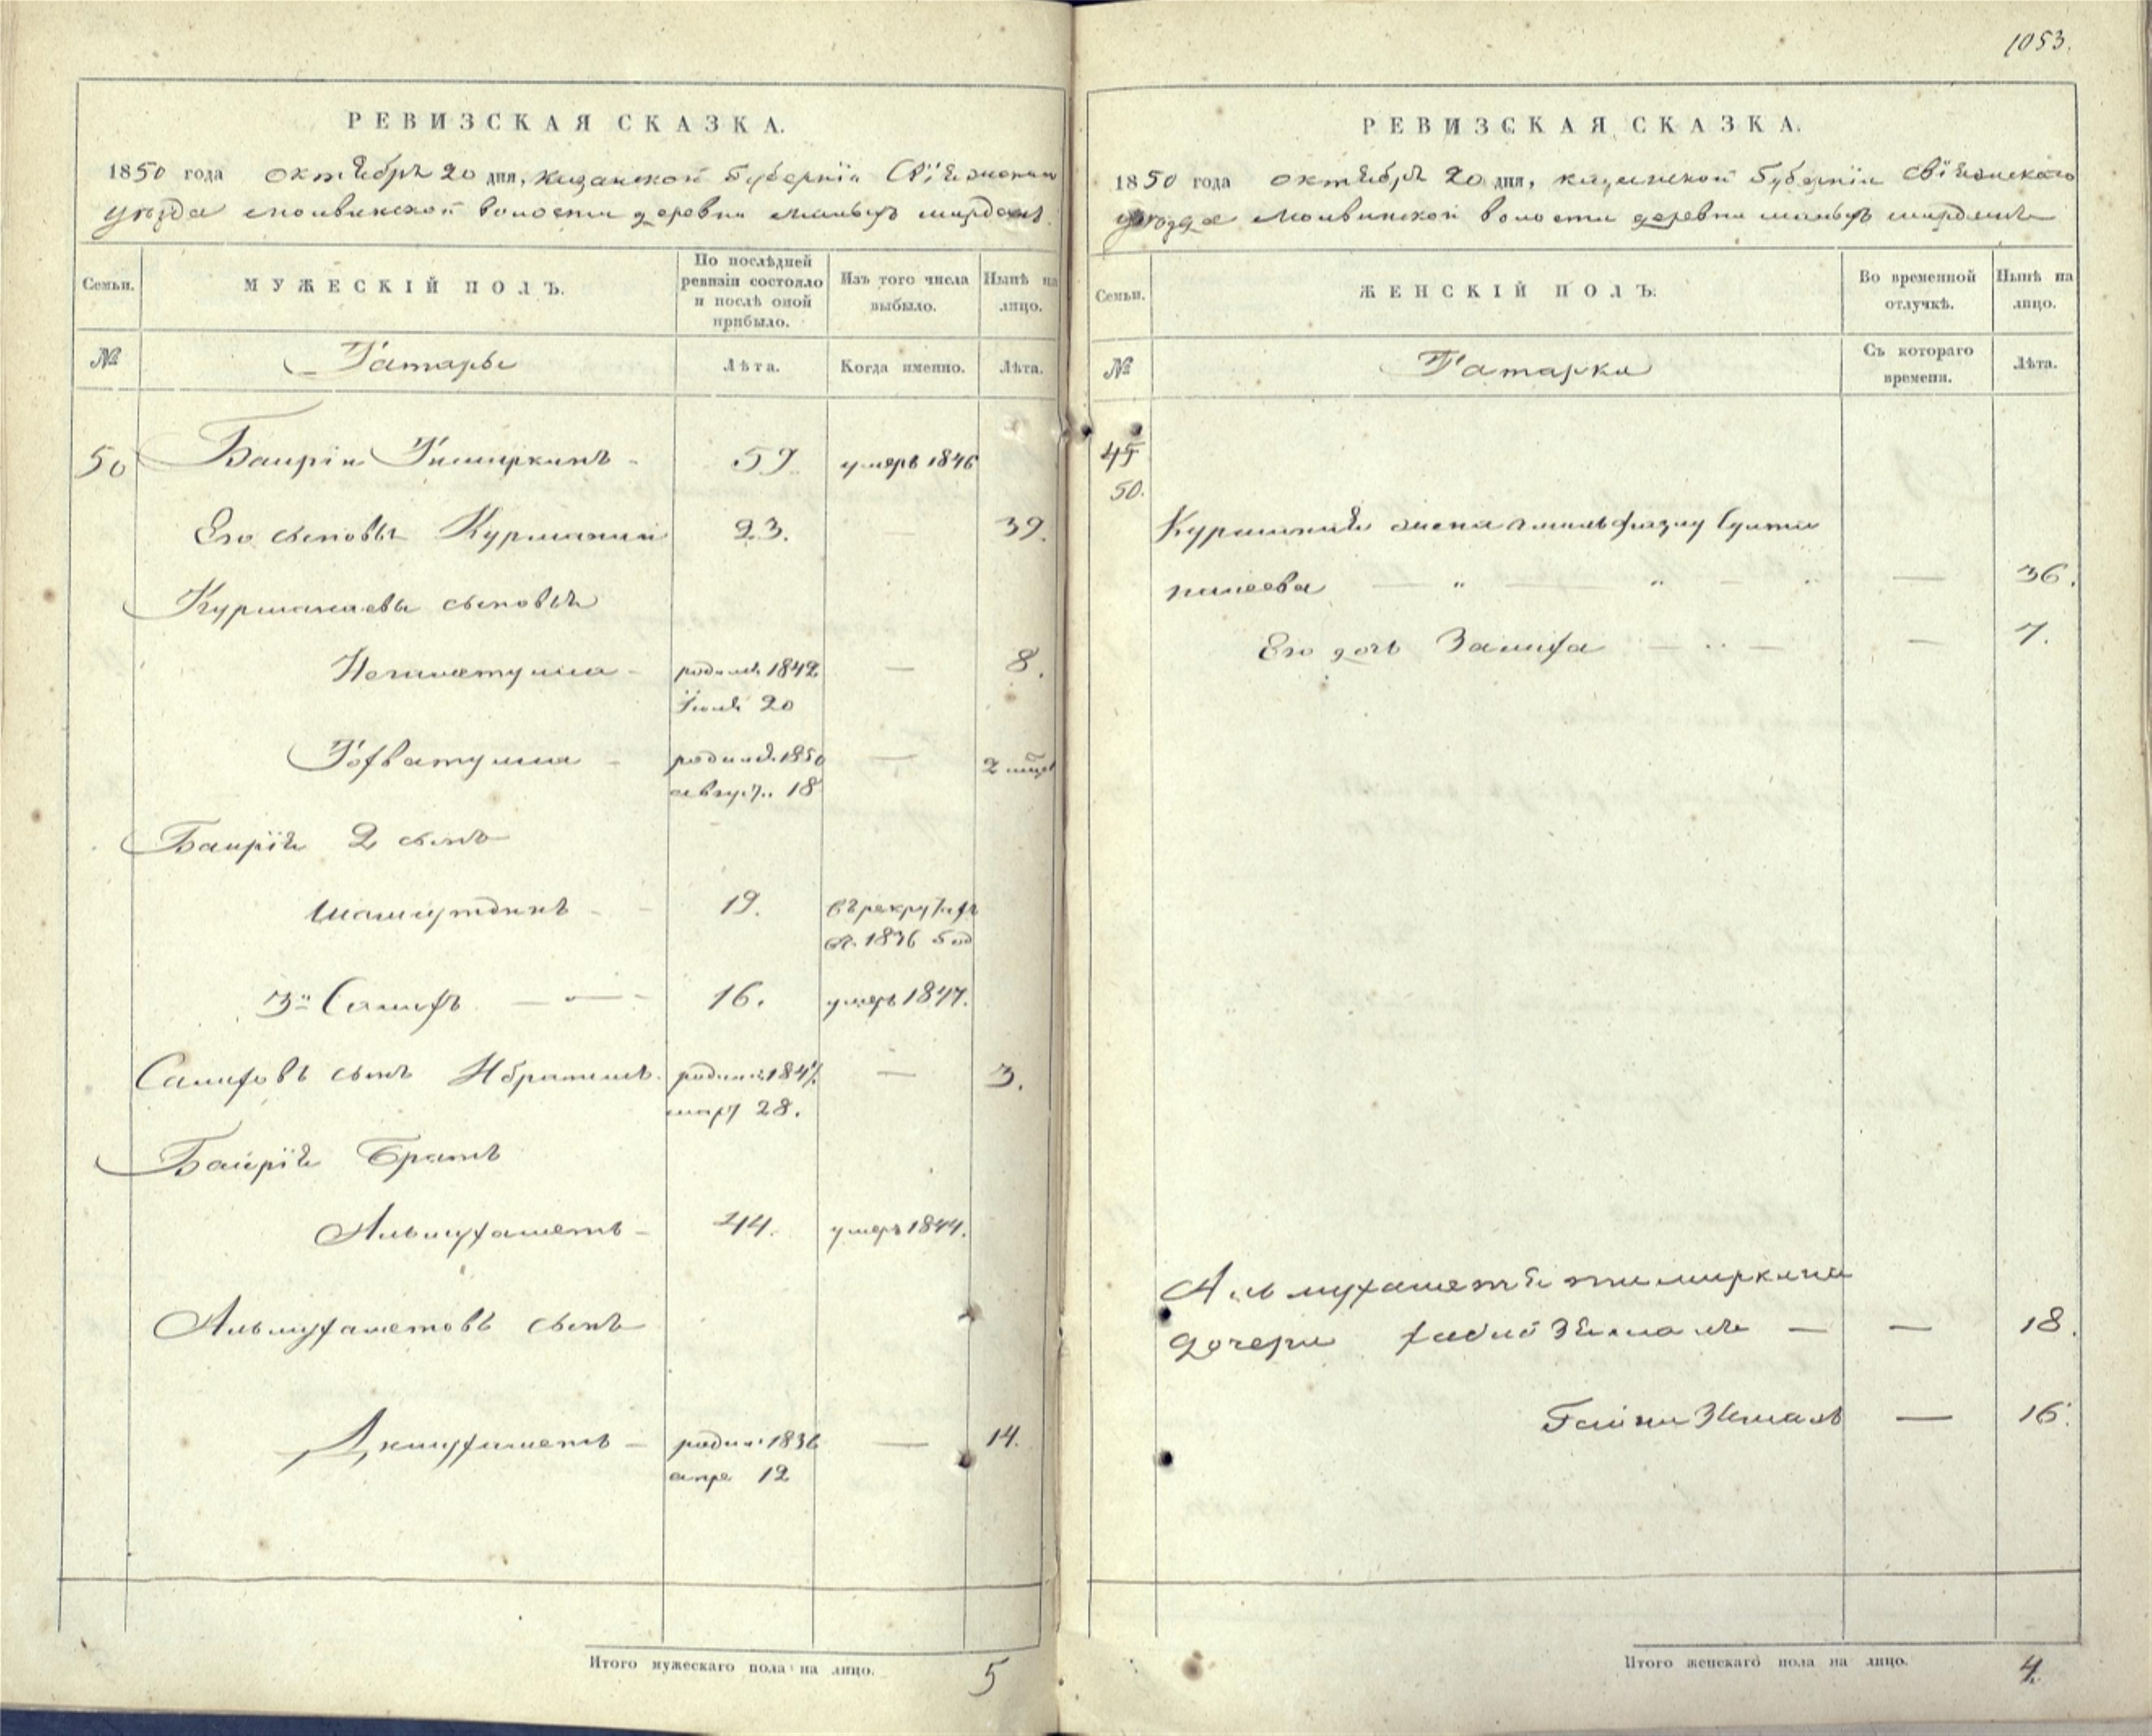 1053.
РЕВИЗСКАЯ СКАЗКА.
1850 года октября 20 дня, казанской Губерніи Свіяжскаго
уезда молвинской волости деревни малыхъ ширданъ.
Семьи. МУЖЕСКІЙ ПОЛЪ. По послѣдней ревизіи состояло и послѣ оной прибыло. Изъ того числа выбыло. Нынѣ на лицо.
№ Татары Лѣта. Когда именно. Лѣта.
50 Баирій Тимиркинъ 59. умеръ 1846
Его сыновья Курманай 23. — 39.
Курманаевы сыновья
Негаметулла родился 1842 — 8.
Іюля 20
Гофватулла родился 1850 — 2 мѣся
август. 18
Баирія 2 сынъ
Шамгутдинъ 19. въ рекрутахъ
съ 1836 год
3й Салифъ 16. умеръ 1847.
Салифовъ сынъ Ибрагимъ родился 1847 — 3.
март 28.
Баирія братъ
Альмухаметъ 44. умеръ 1844.
Альмухаметовъ сынъ
родил. 1836 — 14.
апре 12
Итого мужескаго пола на лицо. 5
РЕВИЗСКАЯ СКАЗКА.
1850 года октября 20 дня, казанской Губерніи Свіяжскаго
уезда Молвинской волости деревни малыхъ ширданъ
Семьи. ЖЕНСКІЙ ПОЛЪ. Во временной отлучкѣ. Нынѣ на лицо.
№ Татарки Съ котораго времени. Лѣта.
45
50.
Курманая жена
— " — " — 36.
Его дочь Залифа — 7.
Альмухаметя тимиркина
дочери — — 18.
Гайни Зямалъ — 16.
Итого женскаго пола на лицо. 4.